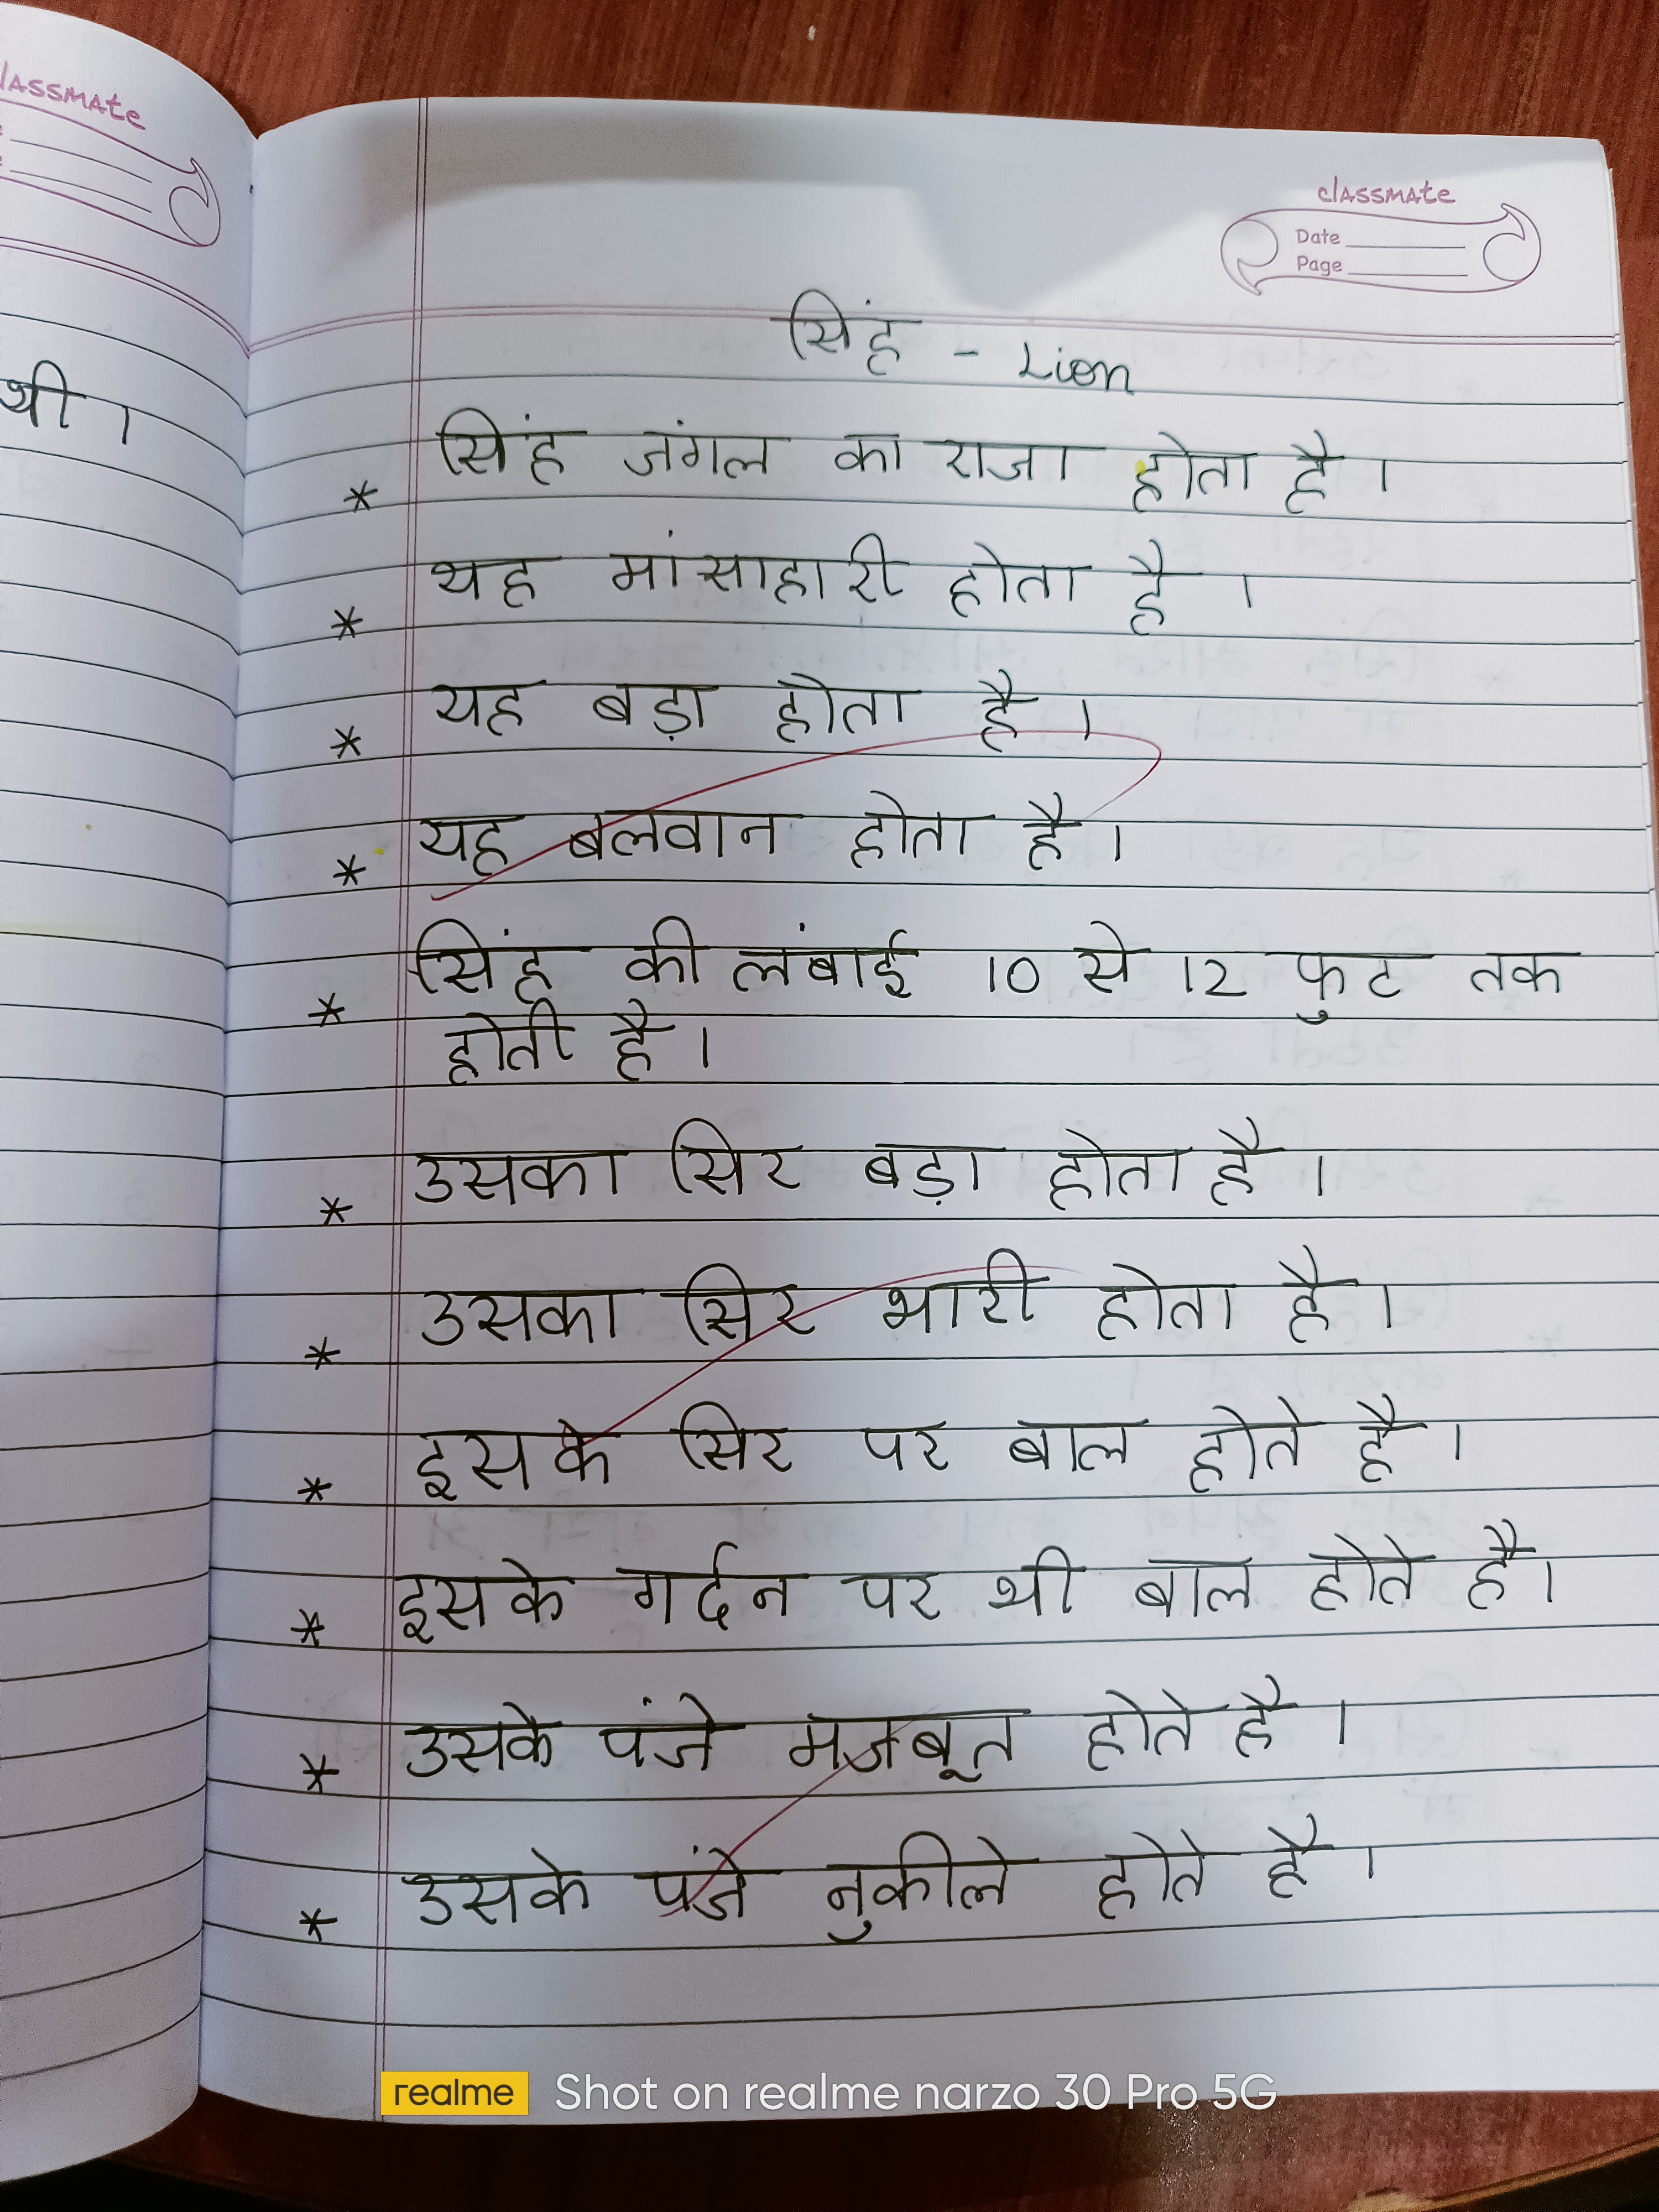 classmate
classmate
Date
Page
थी।
सिंह - Lion
* सिंह जंगल का राजा होता है।
* यह मांसाहारी होता है।
* यह बड़ा होता है।
* यह बलवान होता है।
* सिंह की लंबाई 10 से 12 फुट तक
होती है।
* उसका सिर बड़ा होता है।
* उसका सिर भारी होता है।
* इसके सिर पर बाल होते है।
* इसके गर्दन पर भी बाल होते है।
* उसके पंजे मजबूत होते है।
* उसके पंजे नुकीले होते है।
realme Shot on realme narzo 30 Pro 5G